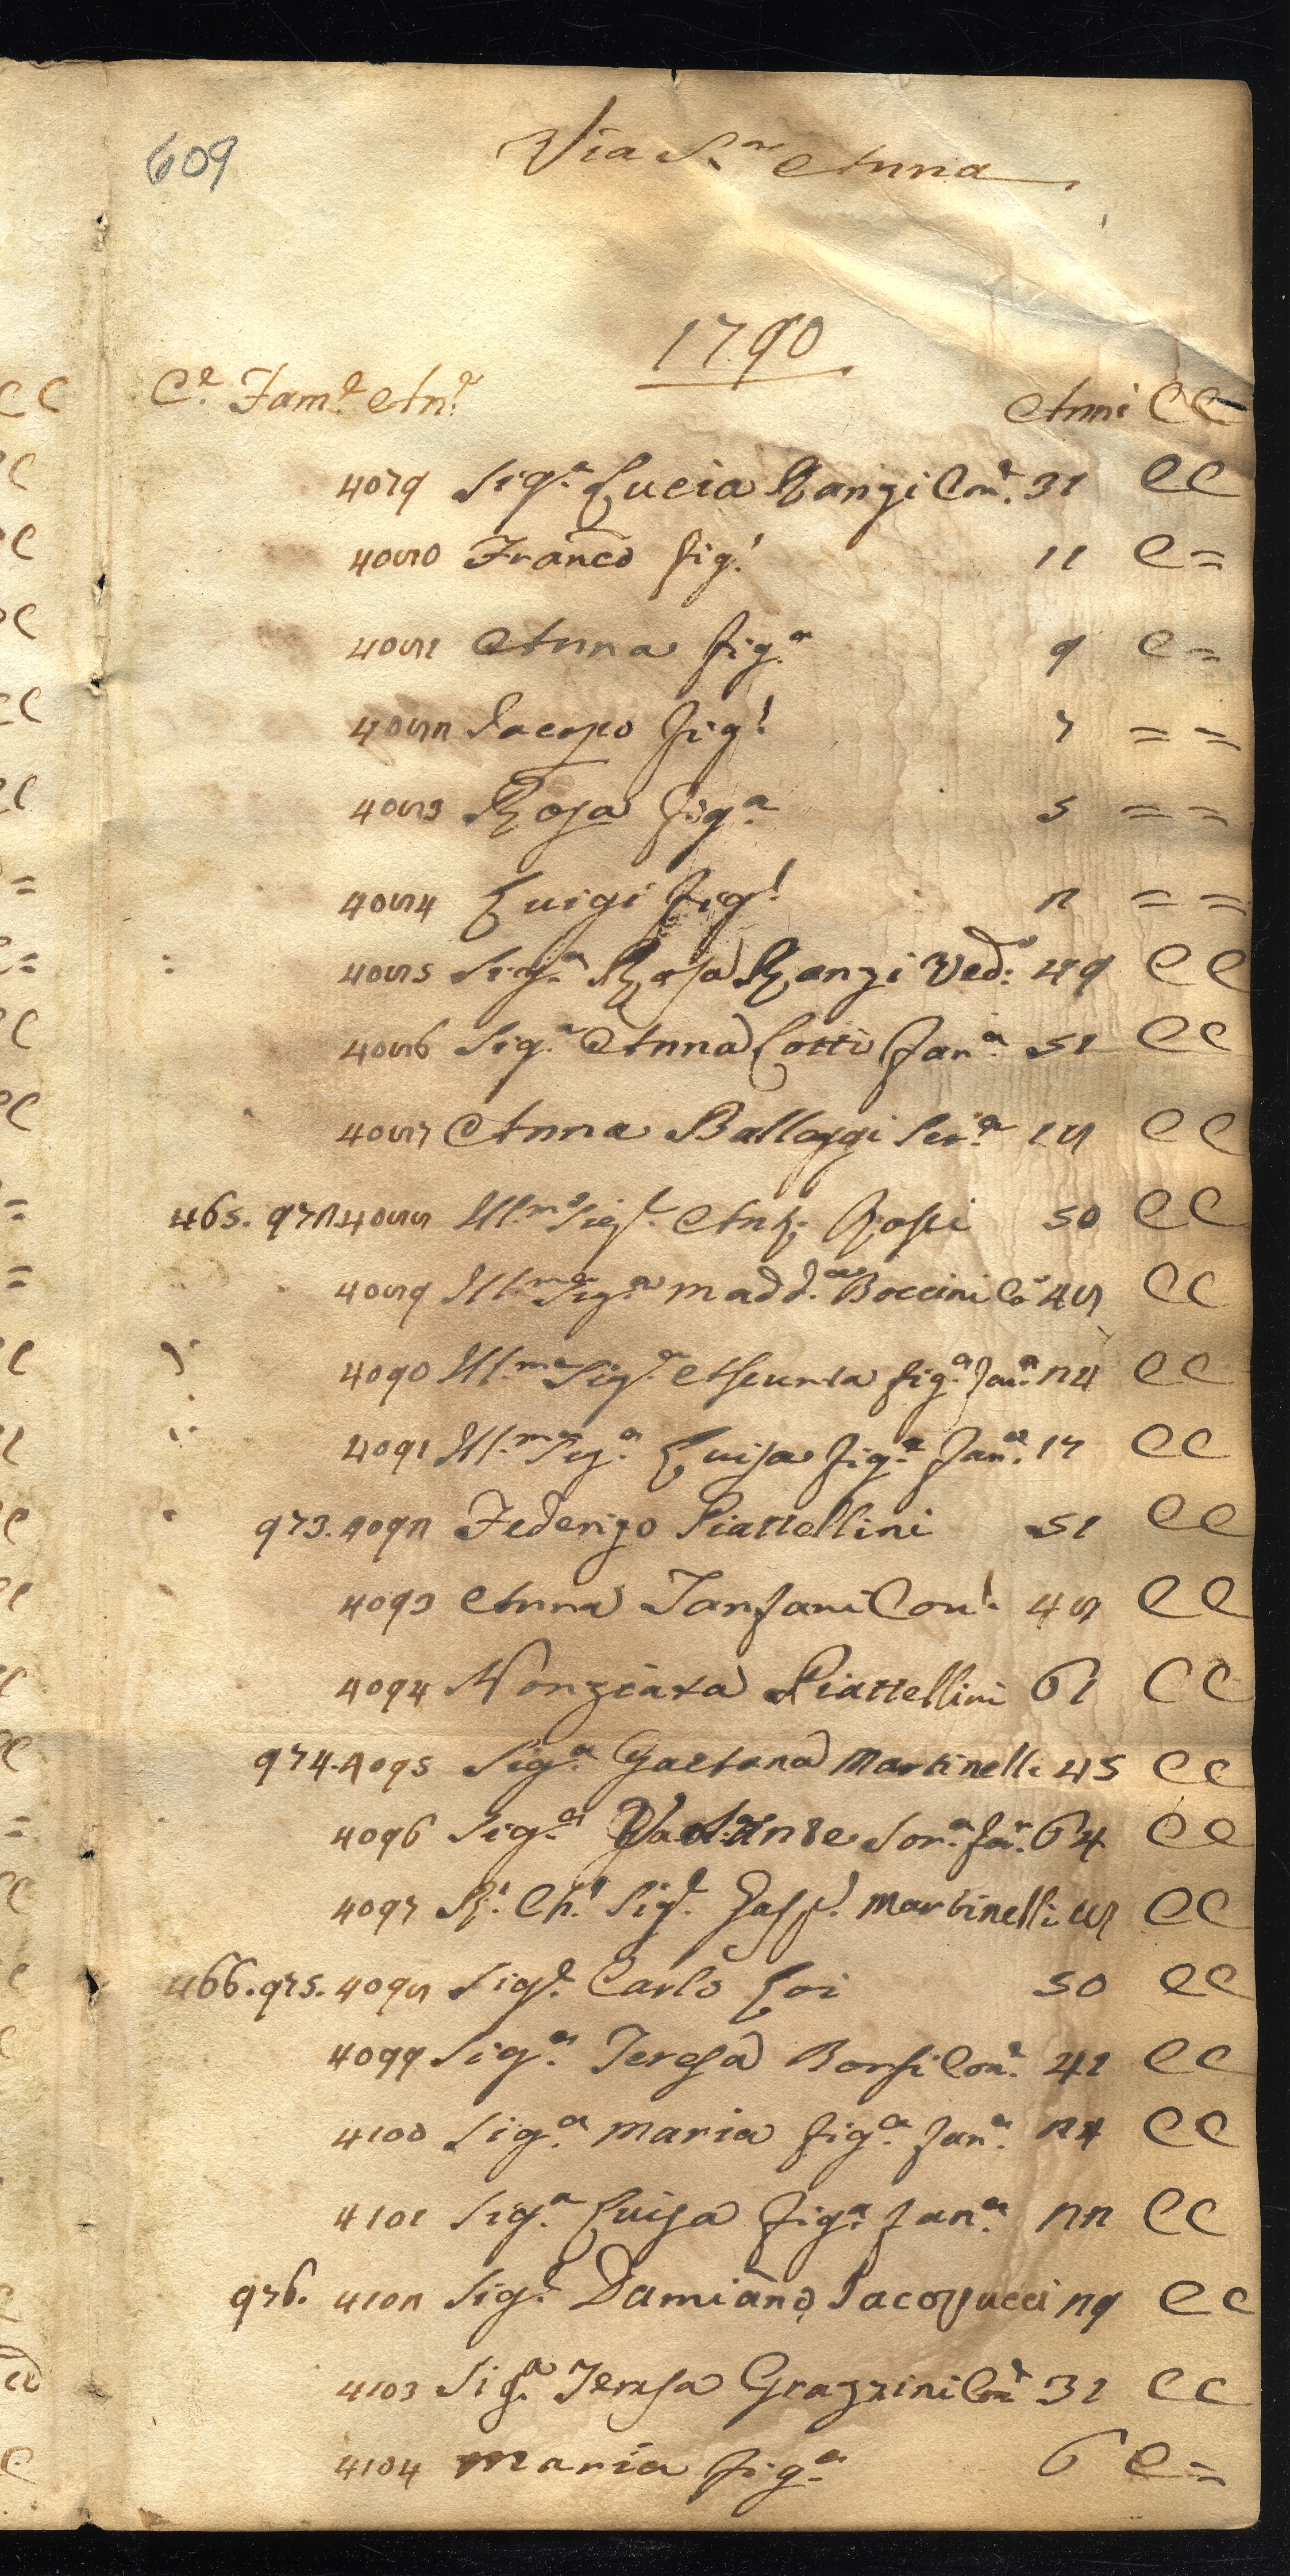 609
Via S.ª Anna
1790
C.e Fam.e An.e Anni CC
4079 Sig.ª Lucia Ranzi Con.e 31 CC
4080 Franco fig.º 11 C =
4081 Anna fig.ª 9 C =
4082 Jacopo fig.º 7 = =
4083 Rosa fig.ª 5 = =
4084 Luigi fig.º 2 = =
4085 Sig.ª Rosa Ranzi Ved: 49 CC
4086 Sig.ª Anna Cotti Fan.ª 51 CC
4087 Anna Balleggi Ser.ª 18 CC
465. 972 4088 Ill.mo Sig.e Ant. Rossi 50 CC
4089 Ill.ma Sig.ª Madd.ª Boccini Co 48 CC
4090 Ill.ma Sig.ª Assunta fig.ª Fan.ª 24 CC
4091 Ill.ma Sig.ª Luisa fig.ª Fan.ª 17 CC
973. 4092 Federigo Piattellini 51 CC
4093 Anna Tanfani Con.e 48 CC
4094 Nonziata Piattellini 61 CC
974. 4095 Sig.ª Gaetana Martinelli 45 CC
4096 Sig.ª Sor.ª Fan. 64 CC
4097 R.e Ch.º Sig.e Gasp.e Martinelli 18 CC
466. 975. 4098 Sig.e Carlo Loi 50 CC
4099 Sig.ª Teresa Borsi Con.e 41 CC
4100 Sig.ª Maria fig.ª Fan.ª 24 CC
4101 Sig.ª Luisa fig.ª Fan.ª 22 CC
976. 4102 Sig.e Damiano Jacopucci 29 CC
4103 Sig.ª Teresa Grazzini Con.e 31 CC
4104 Maria fig.ª 6 C =